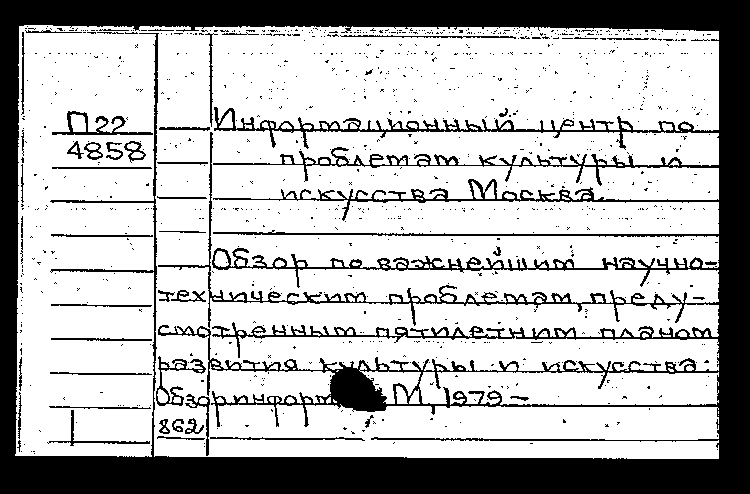 П22
4858
Информационный центр по
проблемам культуры и
искусства Москва.
Обзор по важнейшим научно-
техническим проблемам, преду-
смотренным пятилетним планом
развития культуры и искусства:
Обзоринформ М, 1979 -
862